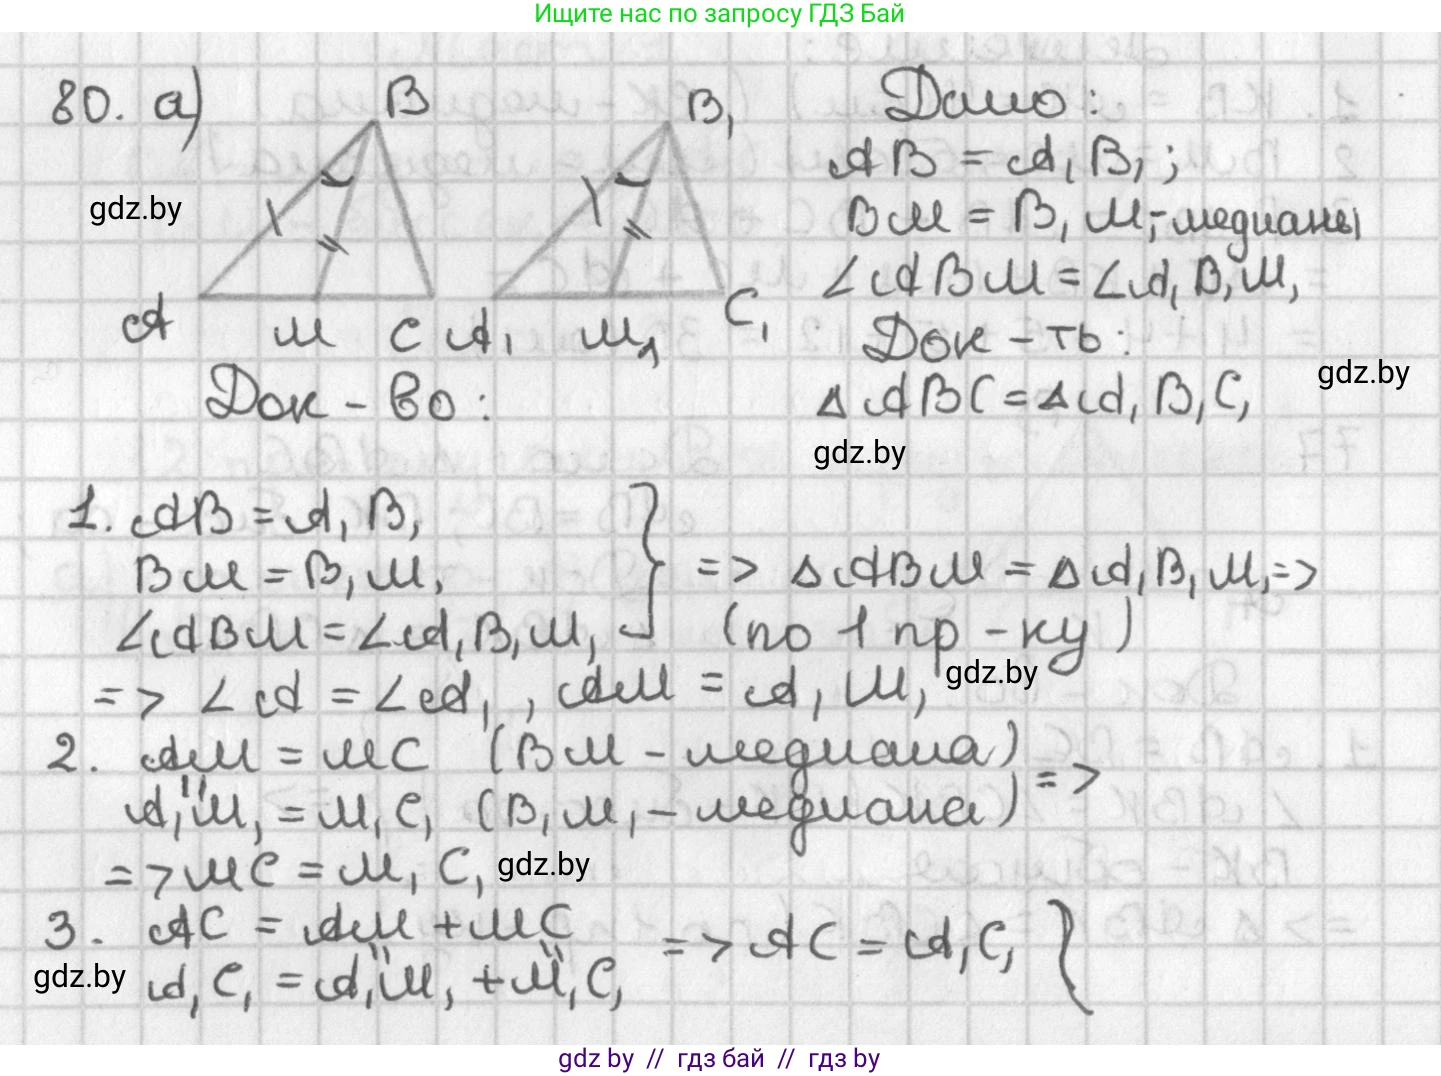 Ищите нас по запросу ГДЗ Бай
80. а)
B
B₁
Дано:
AB = A₁B₁;
BM = B₁M₁ - медианы
∠ABM = ∠A₁B₁M₁
A M C A₁ M₁ C₁
Док-ть:
△ABC = △A₁B₁C₁
Док-во:
gdz.by
gdz.by
gdz.by
1. AB = A₁B₁
BM = B₁M₁
∠ABM = ∠A₁B₁M₁ } => △ABM = △A₁B₁M₁ =>
(по 1 пр-ку)
gdz.by
=> ∠A = ∠A₁, AM = A₁M₁
2. AM = MC (BM - медиана)
A₁M₁ = M₁C₁ (B₁M₁ - медиана) =>
=> MC = M₁C₁
gdz.by
3. AC = AM + MC
A₁C₁ = A₁M₁ + M₁C₁ => AC = A₁C₁ }
gdz.by
gdz by // гдз бай // гдз by